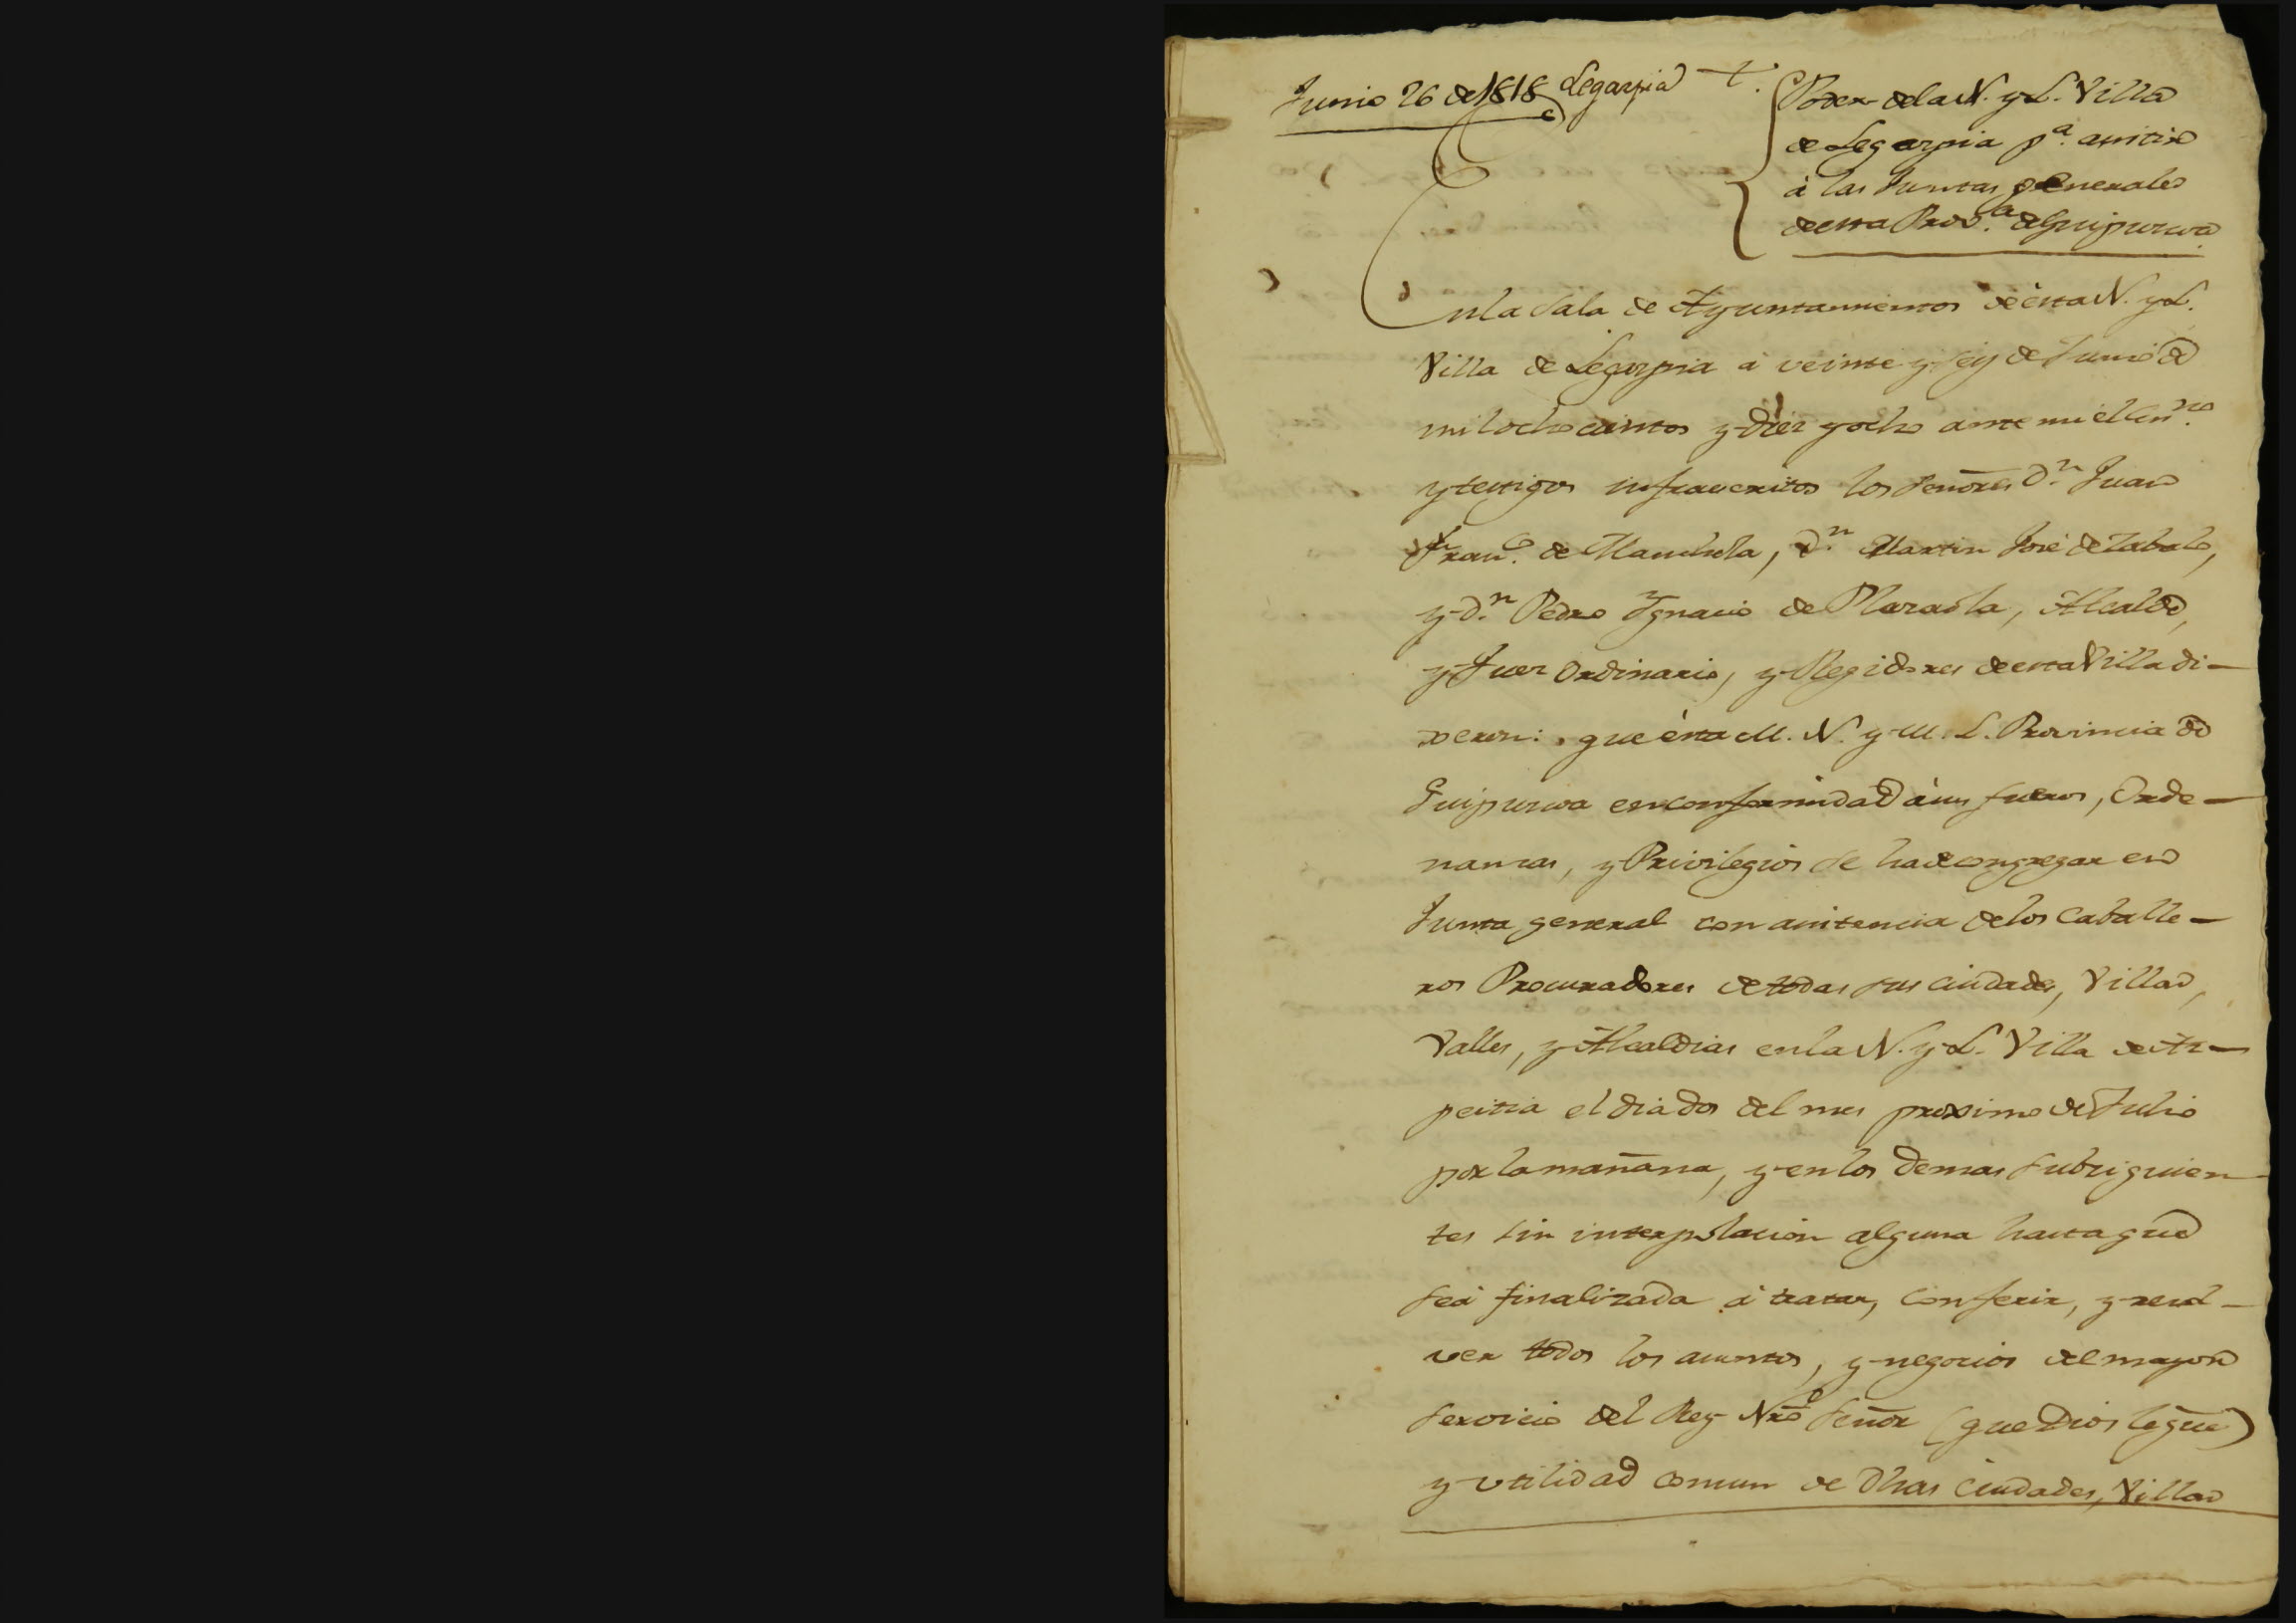 Junio 26 de 1818 Legazpia †.
Poder de la N. y L. Villa
de Legazpia pª. asistir
à las Juntas generales
de esta Provª. de Guipuzcoa.
En la Sala de Ayuntamientos de èsta N. y L.
Villa de Legazpia à veinte y seis de Junio de
mil ochocientos y diez y ocho ante mi èl Essnº.
y testigos infraescritos los Señores Dn. Juan
Franco. de Manchola, Dn. Martin José de Zabalo,
y Dn. Pedro Ygnacio de Plazaola, Alcalde,
y Juez Ordinario, y Regidores de esta Villa di-
xeron: que èsta M. N. y M. L. Provincia de
Guipuzcoa en conformidad à sus fueros, Orde-
nanzas, y Privilegios se ha de congregar en
Junta general con asistencia de los Caballe-
ros Procuradores de todas sus ciudades, Villas,
Valles, y Alcaldias en la N. y L. Villa de Az-
peitia el dia dos del mes proximo de Julio
por la mañana, y en los demas subsiguien-
tes sin interpolacion alguna hasta que
seà finalizada à tratar, conferir, y resol-
ver todos los asuntos, y negocios del mayor
servicio del Rey Nrõ Señor (que Dios le gũe)
y utilidad comun de dhas Ciudades, Villas